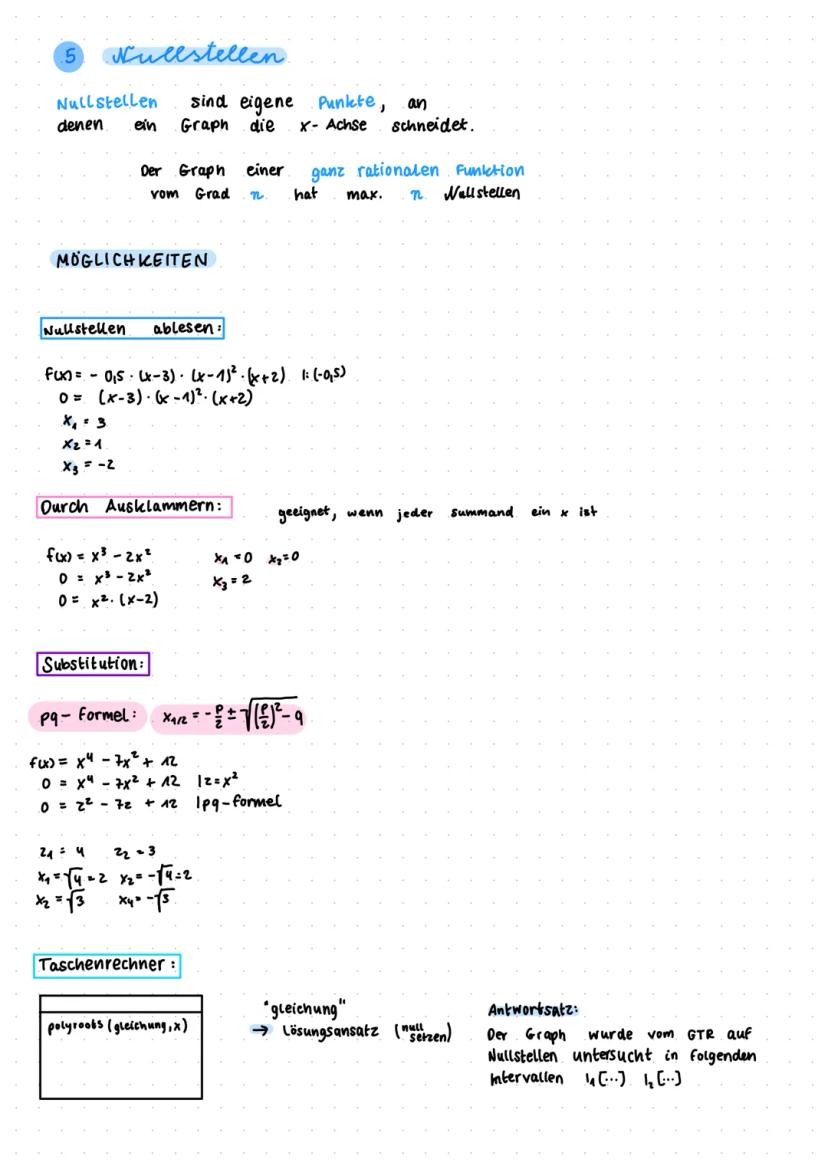 5 Nullstellen
Nullstellen sind eigene Punkte, an
denen ein Graph die x-Achse schneidet.
Der Graph einer ganz rationalen Funktion
vom Grad n hat max. n Nullstellen
MÖGLICHKEITEN
Nullstellen ablesen:
f(x) = - 0,5 · (x-3) · (x-1)² · (x+2) |: (-0,5)
0 = (x-3) · (x-1)² · (x+2)
x₁ = 3
x₂ = 1
x₃ = -2
Durch Ausklammern: geeignet, wenn jeder summand ein x ist
f(x) = x³ - 2x² x₁ = 0 x₂ = 0
0 = x³ - 2x² x₃ = 2
0 = x² · (x-2)
Substitution:
pq-Formel: x₁/₂ = -p/2 ± √((p/2)² - q)
f(x) = x⁴ - 7x² + 12
0 = x⁴ - 7x² + 12 |z=x²
0 = z² - 7z + 12 |pq-formel
z₁ = 4 z₂ = 3
x₁ = √4 = 2 x₂ = -√4 = 2
x₂ = √3 x₄ = -√3
Taschenrechner:
polyroots (gleichung, x)
"gleichung"
→ Lösungsansatz (null setzen)
Antwortsatz:
Der Graph wurde vom GTR auf
Nullstellen untersucht in folgenden
Intervallen I₁ [...] I₂ [...]